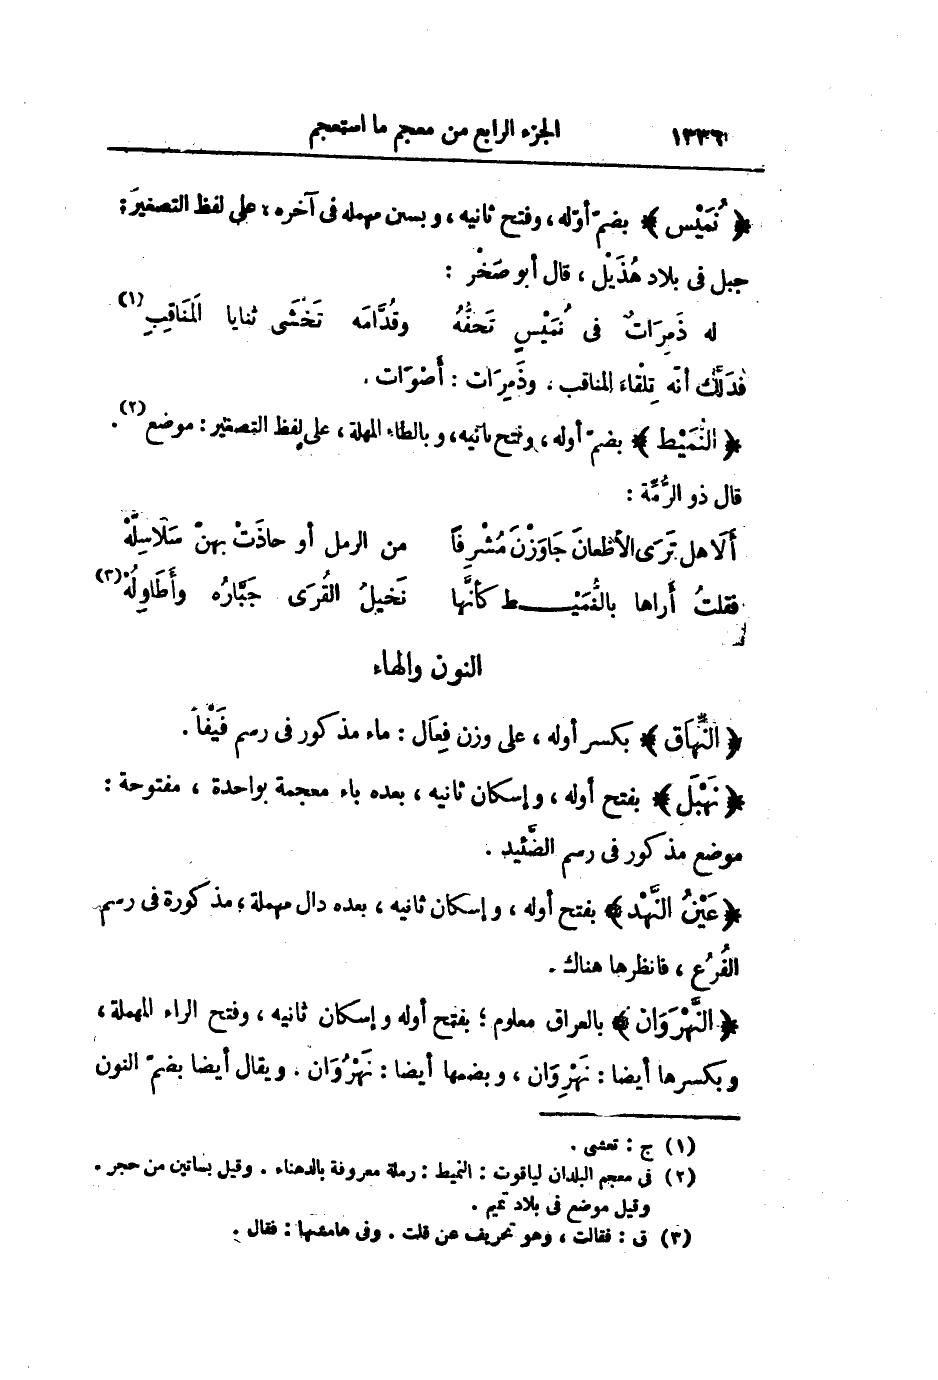 ١٣٣٦ الجزء الرابع من معجم ما استعجم
﴿ نُمَيْس ﴾ بضمّ أوّله ، وفتح ثانيه ، وبسين مهملة فى آخره ، على لفظ التصغير :
جبل فى بلاد هُذَيْل ، قال أبو صَخْر :
له ذَمِرَاتٌ فى نُمَيْسٍ تَحفُّهُ وقُدَّامَه تَخْشَى ثنايا المَنَاقِبِ(١)
فدَلَّك أنّه تِلْقاءَ المناقب ، وذَمِرَات : أَصْوَات .
﴿ النُّمَيْط ﴾ بضمّ أوله ، وفتح ثانيه ، وبالطاء المهملة ، على لفظ التصغير : موضع(٢) .
قال ذو الرُّمَّة :
أَلَا هل تَرَى الأظعانَ جَاوَزْنَ مُشْرِفًا من الرمل أو حاذَتْ بهنّ سَلَاسِلُهْ
فقلتُ أَراها بالنُّمَيْـــط كأنَّها نَخيلُ القُرَى جَبَّارُه وأَطَاوِلُهْ(٣)
النون والهاء
﴿ النِّهَاق ﴾ بكسر أوله ، على وزن فِعَال : ماء مذكور فى رسم فَيْفَا .
﴿ نَهْبَل ﴾ بفتح أوله ، وإسكان ثانيه ، بعده باء معجمة بواحدة ، مفتوحة :
موضع مذكور فى رسم الضَّئيد .
﴿ عَيْنُ النَّهْد ﴾ بفتح أوله ، وإسكان ثانيه ، بعده دال مهملة ؛ مذكورة فى رسم
الفُرُع ، فانظرها هناك .
﴿ النَّهْرَوَان ﴾ بالعراق معلوم ؛ بفتح أوله وإسكان ثانيه ، وفتح الراء المهملة ،
وبكسرها أيضا : نَهْرِوَان ، وبضمها أيضا : نَهْرُوَان . ويقال أيضا بضمّ النون
(١) ج : تعشى .
(٢) فى معجم البلدان لياقوت : النميط : رملة معروفة بالدهناء . وقيل بساتين من حجر .
وقيل موضع فى بلاد تميم .
(٣) ق : فقالت ، وهو تحريف عن قلت . وفى هامشها : فقال .